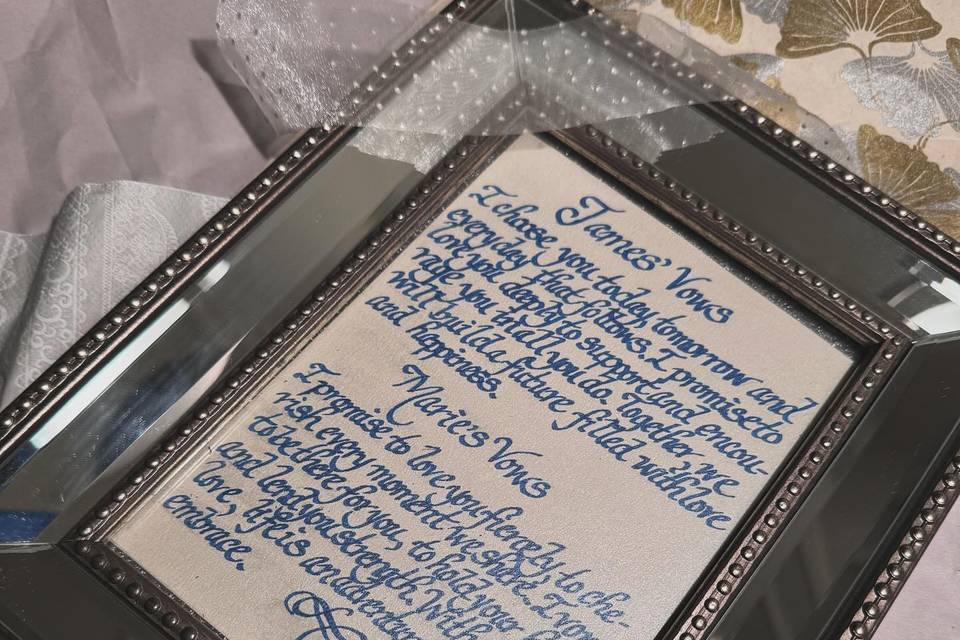 James' Vows
I choose you today, tomorrow and
everyday that follows. I promise to
love you to support and encou-
rage you in all you do. Together we
will build a future filled with love
and happiness.
Marie's Vows
I promise to love you fiercely, to che-
rish every moment we share. I vow
to be there for you, to hold your
and lend you strength. With
love, life is an
embrace.